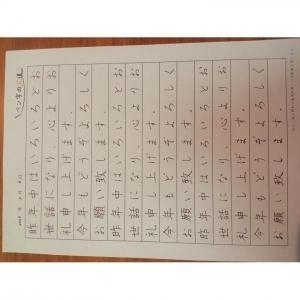 ペン字の
昨年中はいろいろとお
世話になり、心よりお
礼申し上げます。
今年もどうぞよろしく
お願い致します。
昨年中はいろいろとお
世話になり、心よりお
礼申し上げます。
今年もどうぞよろしく
お願い致します。
昨年中はいろいろとお
世話になり、心よりお
礼申し上げます。
今年もどうぞよろしく
お願い致します。